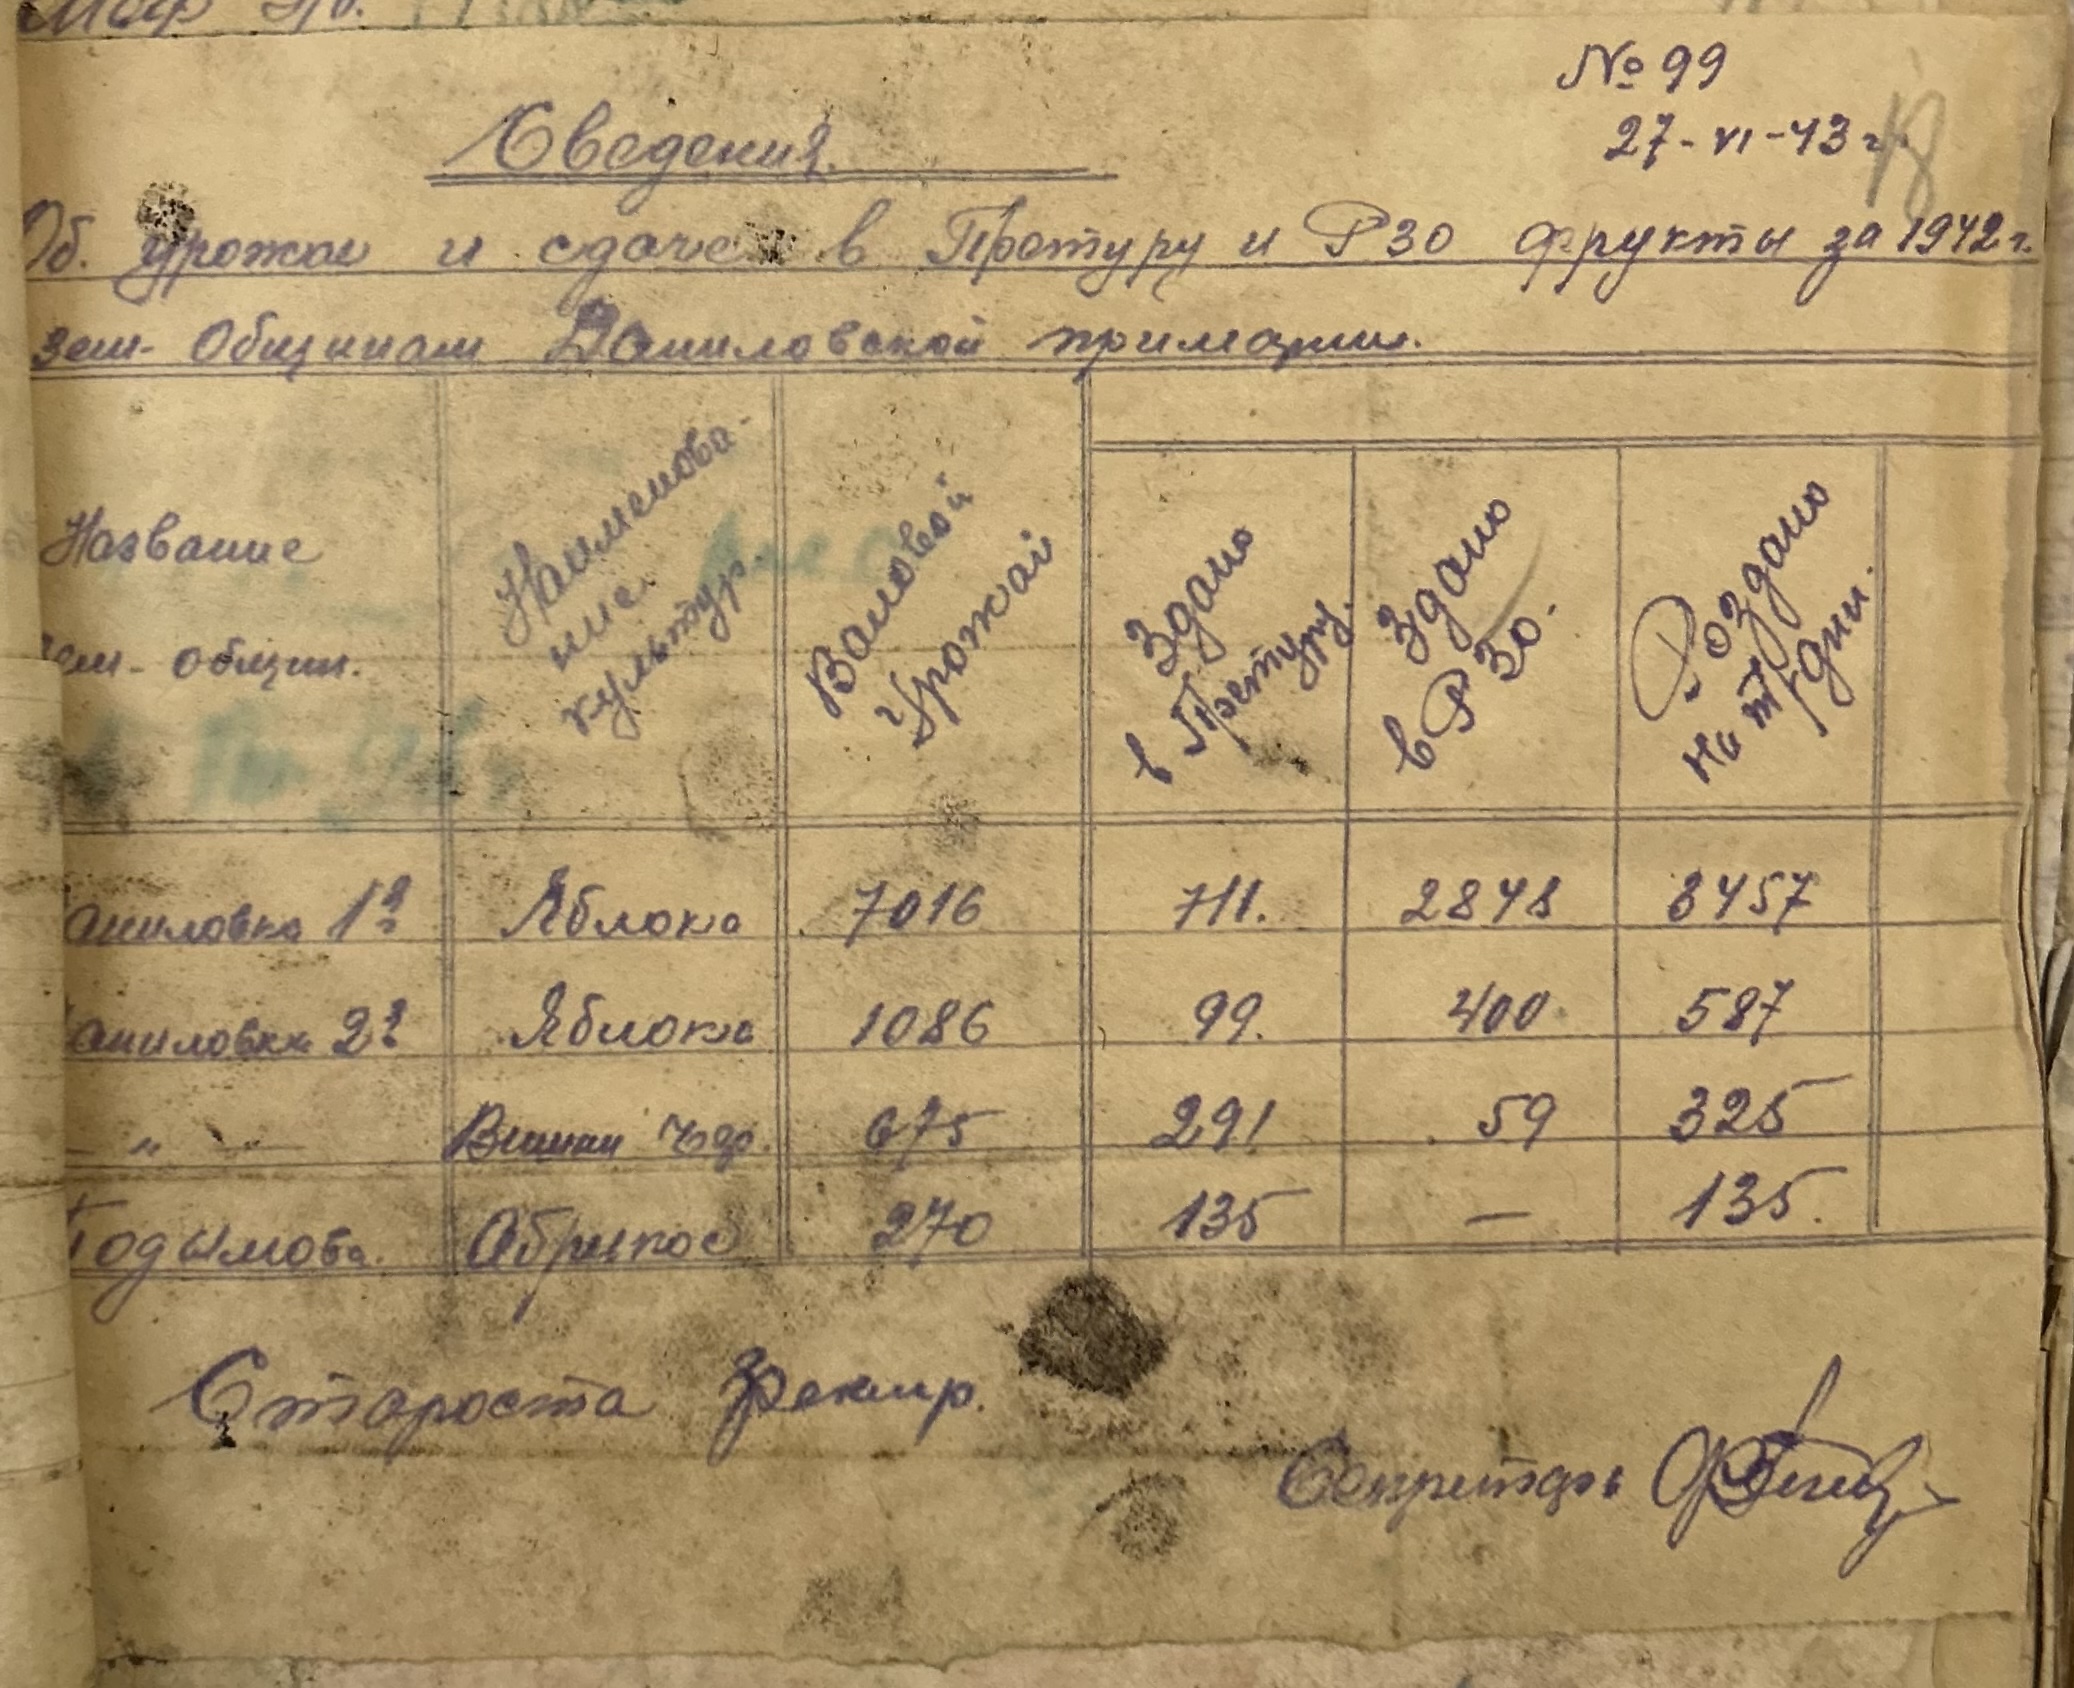 № 99
27-VI-43 г.
Сведения.
Об. урожае и сдаче в Претуру и РЗО фрукты за 1942 г.
зем- Общинам Даниловской примарии.
Название
зем- общин.
Наименова-
ние
культур.
Валовой
Урожай
Здано
в Претуру.
Здано
в РЗО.
Роздано
на тр/дни.
аниловка 1я Яблока 7016 711. 2848 3457
аниловка 2я Яблока 1086 99. 400 587
— " — Вишни Чер. 675 291 59 325
Годымова. Абрикос 270 135 — 135.
Староста
Секретарь